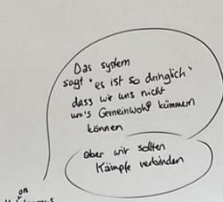 Das system
sagt "es ist so dringlich"
dass wir uns nicht
um's Gemeinwohl kümmern
können
aber wir sollten
Kämpfe verbinden
on